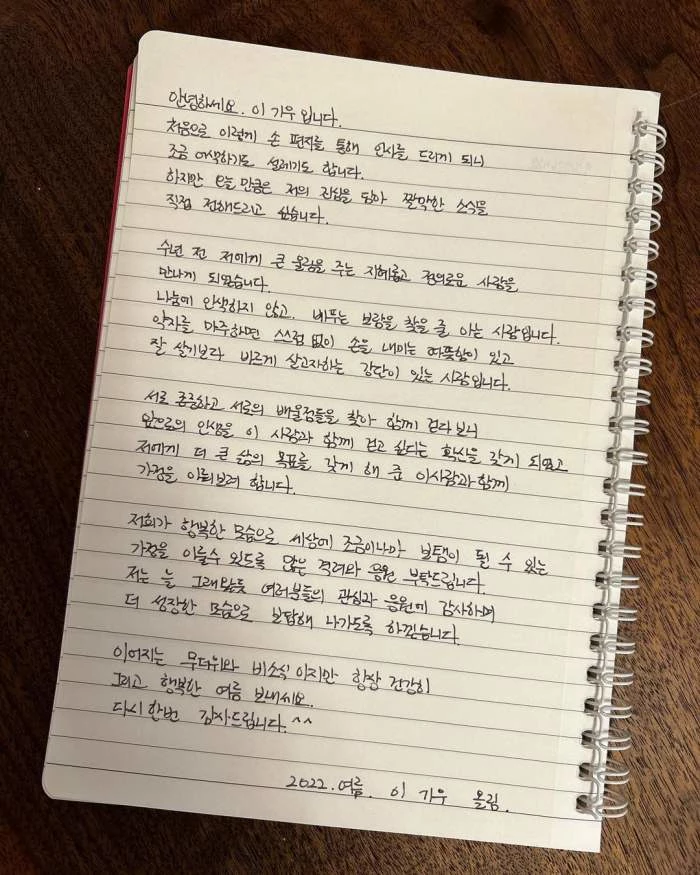 안녕하세요. 이 가우 입니다.
처음으로 이렇게 손 편지를 통해 인사를 드리게 되니
조금 어색하기도 설레기도 합니다.
하지만 오늘만큼은 저의 진심을 담아 짤막한 소식을
직접 전해드리고 싶습니다.
수년 전 저에게 큰 울림을 주는 지혜롭고 정의로운 사람을
만나게 되었습니다.
나눔에 인색하지 않고. 베푸는 보람을 찾을 줄 아는 사람입니다.
약자를 마주하면 스스럼 없이 손을 내미는 따뜻함이 있고
잘 살기보다 바르게 살고자하는 강단이 있는 사람입니다.
서로 존중하고 서로의 배울점들을 찾아 함께 걷다보니
앞으로의 인생을 이 사람과 함께 걷고 싶다는 확신을 갖게 되었고
저에게 더 큰 삶의 목표를 갖게 해 준 이사람과 함께
가정을 이뤄보려 합니다.
저희가 행복한 모습으로 세상에 조금이나마 보탬이 될 수 있는
가정을 이룰수 있도록 많은 격려와 응원 부탁드립니다.
저는 늘 그래왔듯 여러분들의 관심과 응원에 감사하며
더 성장한 모습으로 보답해 나가도록 하겠습니다.
이어지는 무더위와 비소식 이지만 항상 건강히
그리고 행복한 여름 보내세요.
다시한번 감사드립니다.^^
2022.여름. 이 가우 올림.